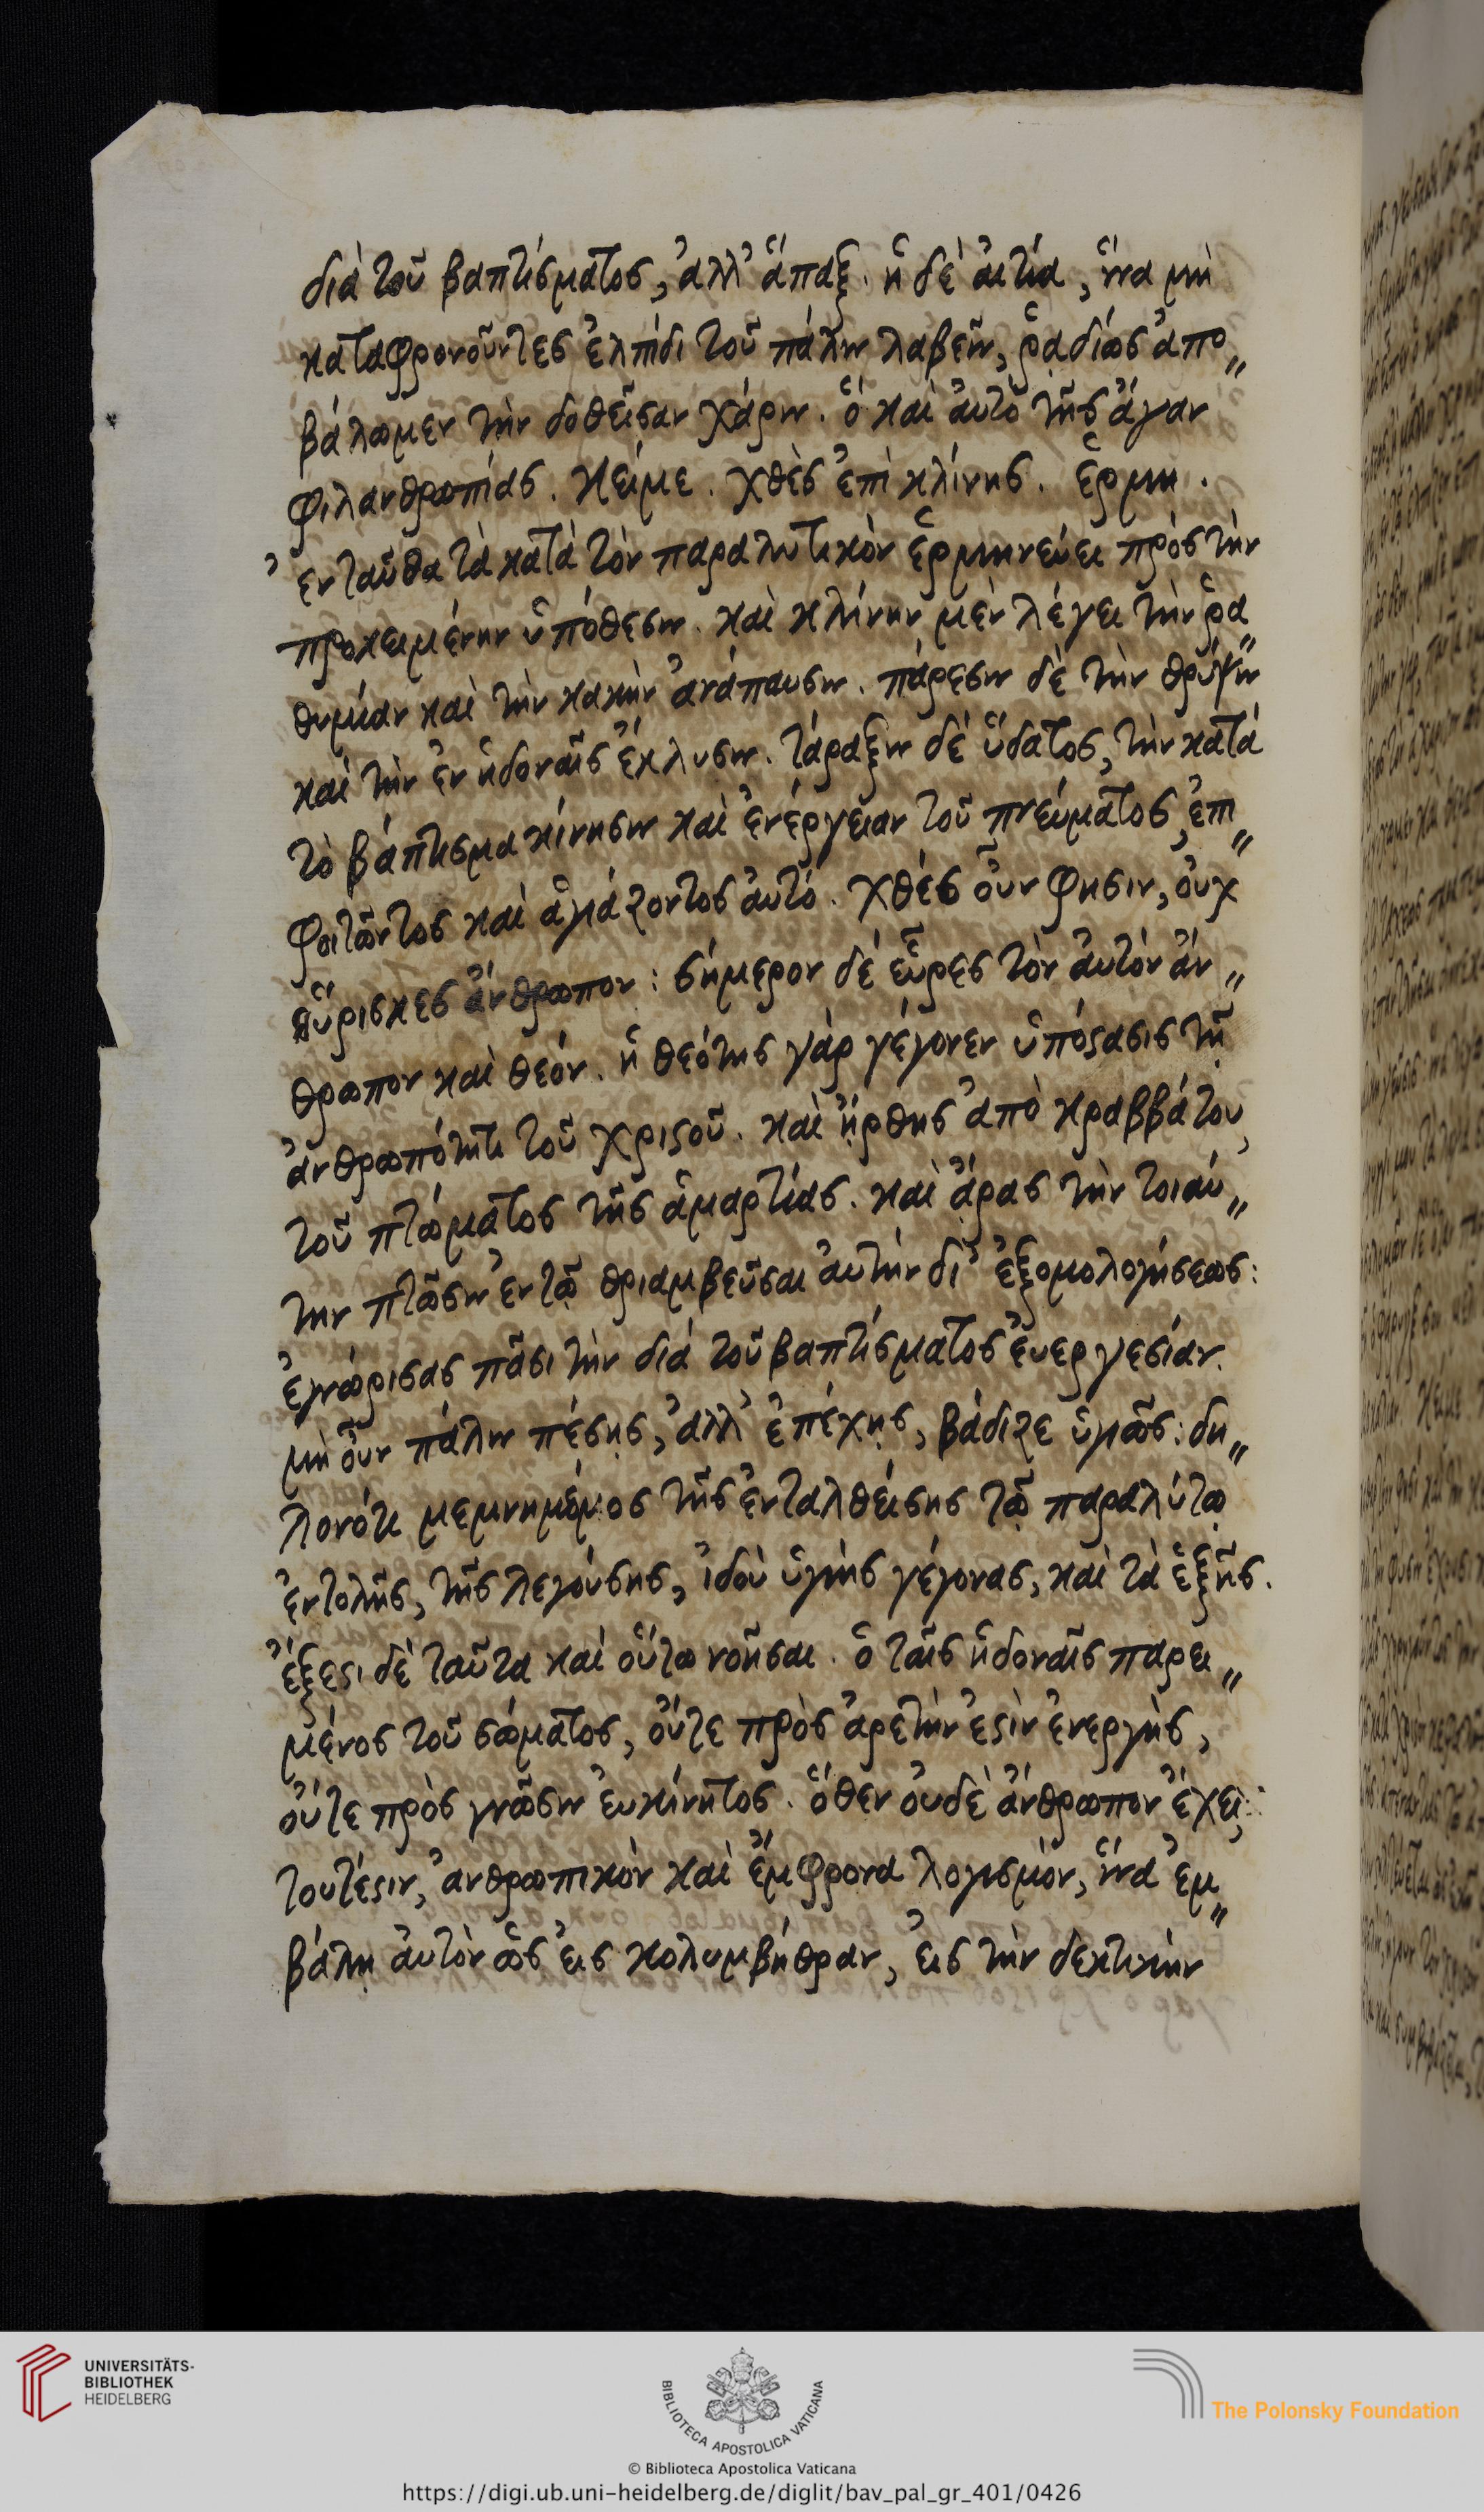 διὰ τοῦ βαπτίσματος, ἀλλ' ἅπαξ. ἡ δὲ ἀιτία, ἵνα μὴ
καταφρονοῦντες ἐλπίδι τοῦ πάλιν λαβεῖν, ῥαδίως ἀπο„
βάλωμεν τὴν δοθεῖσαν χάριν. ὃ καὶ ἀυτὸ τῆς ἄγαν
φιλανθρωπίας. Κείμε. χθὲς ἐπὶ κλίνης. ἑρμη.
ἐνταῦθα τὰ κατὰ τὸν παραλυτικὸν ἑρμηνεύει πρὸς τὴν
προκειμένην ὑπόθεσιν. καὶ κλίνην μὲν λέγει τὴν ῥα„
θυμίαν καὶ τὴν κακὴν ἀνάπαυσιν. πάρεσιν δὲ τὴν θρύψιν
καὶ τὴν ἐν ἡδοναῖς ἔκλυσιν. τάραξιν δὲ ὕδατος, τὴν κατὰ
τὸ βάπτισμα κίνησιν καὶ ἐνέργειαν τοῦ πνεύματος, ἐπι„
φοιτῶντος καὶ ἁγιάζοντος ἀυτό. χθὲς οὖν φησιν, ὀυχ
ηὕρισκες ἄνθρωπον: σήμερον δὲ εὗρες τὸν ἀυτὸν ἄν„
θρωπον καὶ θεόν. ἡ θεότης γὰρ γέγονεν ὑπόϛασις τῇ
ἀνθρωπότητι τοῦ χριϛοῦ. καὶ ἤρθης ἀπὸ κραββάτου,
τοῦ πτώματος τῆς ἁμαρτίας. καὶ ἄρας τὴν τοιαύ„
την πτῶσιν ἐν τῷ θριαμβεῦσαι ἀυτὴν δι' ἐξομολογήσεως:
ἐγνώρισας πᾶσι τὴν διὰ τοῦ βαπτίσματος ἐυεργεσίαν.
μὴ οὖν πάλιν πέσῃς, ἀλλ' ἐπέχῃς, βάδιζε ὑγιῶς: δη„
λονότι μεμνημένος τῆς ἐνταλθείσης τῷ παραλύτῳ
ἐντολῆς, τῆς λεγούσης, ἰδοὺ ὑγιὴς γέγονας, καὶ τὰ ἑξῆς.
ἔξεϛι δὲ ταῦτα καὶ οὕτω νοῆσαι. ὁ ταῖς ἡδοναῖς παρει„
μένος τοῦ σώματος, οὔτε πρὸς ἀρετὴν ἐϛὶν ἐνεργὴς,
οὔτε πρὸς γνῶσιν ἐυκίνητος. ὅθεν ὀυδὲ ἄνθρωπον ἔχει:
τουτέϛιν, ἀνθρωπικὸν καὶ ἔμφρονα λογισμὸν, ἵνα ἐμ„
βάλῃ ἀυτὸν ὡς ἐις κολυμβήθραν, ἐις τὴν δεκτικὴν
UNIVERSITÄTS-
BIBLIOTHEK
HEIDELBERG
BIBLIOTECA APOSTOLICA VATICANA
The Polonsky Foundation
© Biblioteca Apostolica Vaticana
https://digi.ub.uni-heidelberg.de/diglit/bav_pal_gr_401/0426